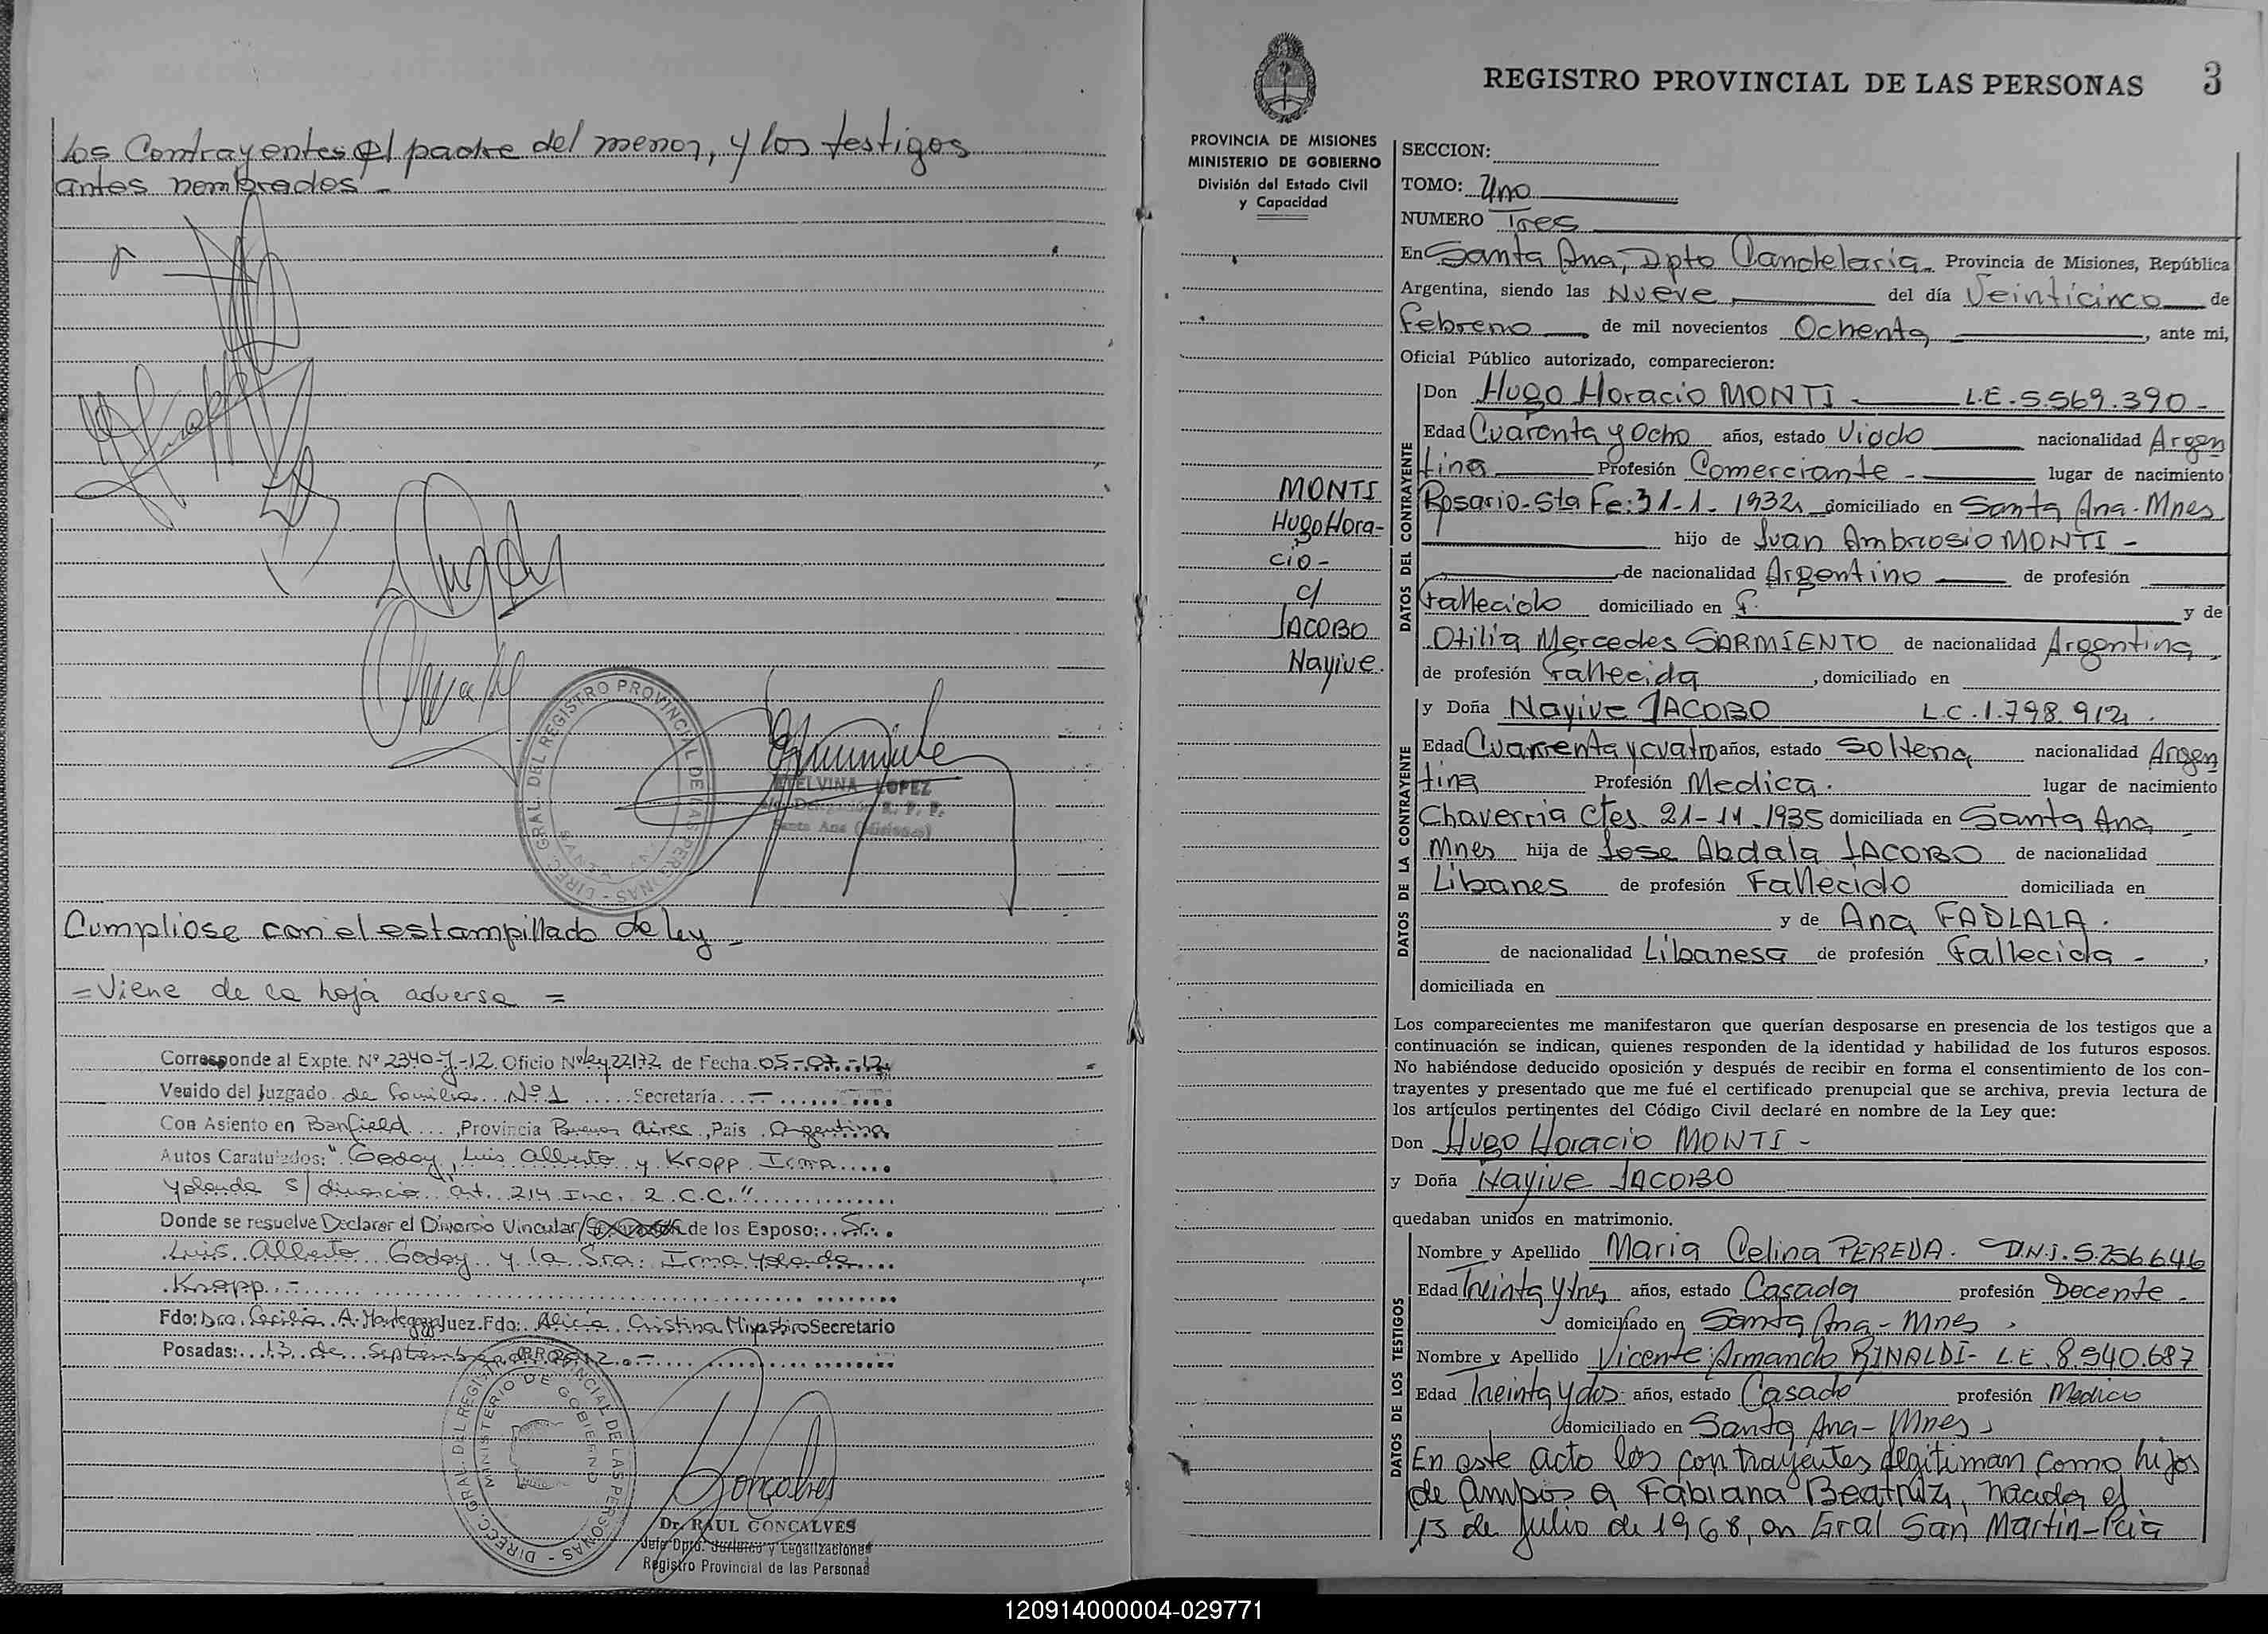 Los Contrayentes el padre del menor, y los testigos
antes nombrados -
DIREC. GRAL. DEL REGISTRO PROVINCIAL DE LAS PERSONAS
ETELVINA LOPEZ
R. P. P.
Santa Ana (Misiones)
Cumpliose con el estampillado de ley -
= Viene de la hoja adversa =
Corresponde al Expte. Nº 2340-J-12. Oficio Nº Ley 22172 de Fecha 05-07-12
Venido del Juzgado de Familia Nº 1 Secretaría -
Con Asiento en Banfield, Provincia Buenos Aires, Pais Argentina
Autos Caratulados: "Godoy, Luis Alberto y Kropp Irma
Yolanda S/ divorcio art. 214 Inc. 2 C.C."
Donde se resuelve Declarar el Divorcio Vincular/ de los Esposo: Sr.
Luis Alberto Godoy y la Sra: Irma Yolanda
Kropp. -
Fdo: Dra. Cecilia A. Juez. Fdo: Alicia Cristina Secretario
Posadas: 13 de Septiembre 2012. -
DIREC. GRAL. DEL REGISTRO PROVINCIAL DE LAS PERSONAS
MINISTERIO DE GOBIERNO
Goncalves
Dr. RAUL GONCALVES
Jefe Dpto. Jurídico y Legalizaciones
Registro Provincial de las Personas
REGISTRO PROVINCIAL DE LAS PERSONAS 3
PROVINCIA DE MISIONES
MINISTERIO DE GOBIERNO
División del Estado Civil
y Capacidad
MONTI
Hugo Hora-
cio -
c/
JACOBO
Nayive.
SECCION:
TOMO: Uno
NUMERO Tres
En Santa Ana, Dpto Candelaria - Provincia de Misiones, República
Argentina, siendo las Nueve, del día Veinticinco de
Febrero de mil novecientos Ochenta, ante mi,
Oficial Público autorizado, comparecieron:
DATOS DEL CONTRAYENTE
Don Hugo Horacio MONTI - L.E. 5.569.390 -
Edad Cuarenta y Ocho años, estado Viudo nacionalidad Argen
tina Profesión Comerciante - lugar de nacimiento
Rosario - Sta Fe: 31-1-1932, domiciliado en Santa Ana - Mnes
hijo de Juan Ambrosio MONTI -
de nacionalidad Argentino de profesión
Fallecido domiciliado en f. y de
Otilia Mercedes SARMIENTO de nacionalidad Argentina,
de profesión Fallecida, domiciliado en
DATOS DE LA CONTRAYENTE
y Doña Nayive JACOBO L.C. 1.798.912.
Edad Cuarenta y cuatro años, estado Soltera nacionalidad Argen
tina Profesión Medica. lugar de nacimiento
Chaverria Ctes. 21-11-1935 domiciliada en Santa Ana -
Mnes hija de Jose Abdala JACOBO de nacionalidad
Libanes de profesión Fallecido domiciliada en
y de Ana FADLALA.
de nacionalidad Libanesa de profesión Fallecida -,
domiciliada en
Los comparecientes me manifestaron que querían desposarse en presencia de los testigos que a
continuación se indican, quienes responden de la identidad y habilidad de los futuros esposos.
No habiéndose deducido oposición y después de recibir en forma el consentimiento de los con-
trayentes y presentado que me fué el certificado prenupcial que se archiva, previa lectura de
los artículos pertinentes del Código Civil declaré en nombre de la Ley que:
Don Hugo Horacio MONTI -
y Doña Nayive JACOBO
quedaban unidos en matrimonio.
DATOS DE LOS TESTIGOS
Nombre y Apellido Maria Celina PEREDA. D.N.I. 5.256.646
Edad Treinta y tres años, estado Casada profesión Docente -
domiciliado en Santa Ana - Mnes.
Nombre y Apellido Vicente Armando RINALDI - L.E. 8.540.687
Edad Treinta y dos años, estado Casado profesión Medico
domiciliado en Santa Ana - Mnes
En este acto los contrayentes legitiman como hijos
de ambos a Fabiana Beatriz, nacida el
13 de Julio de 1968, en Gral San Martin - Pcia
120914000004-029771